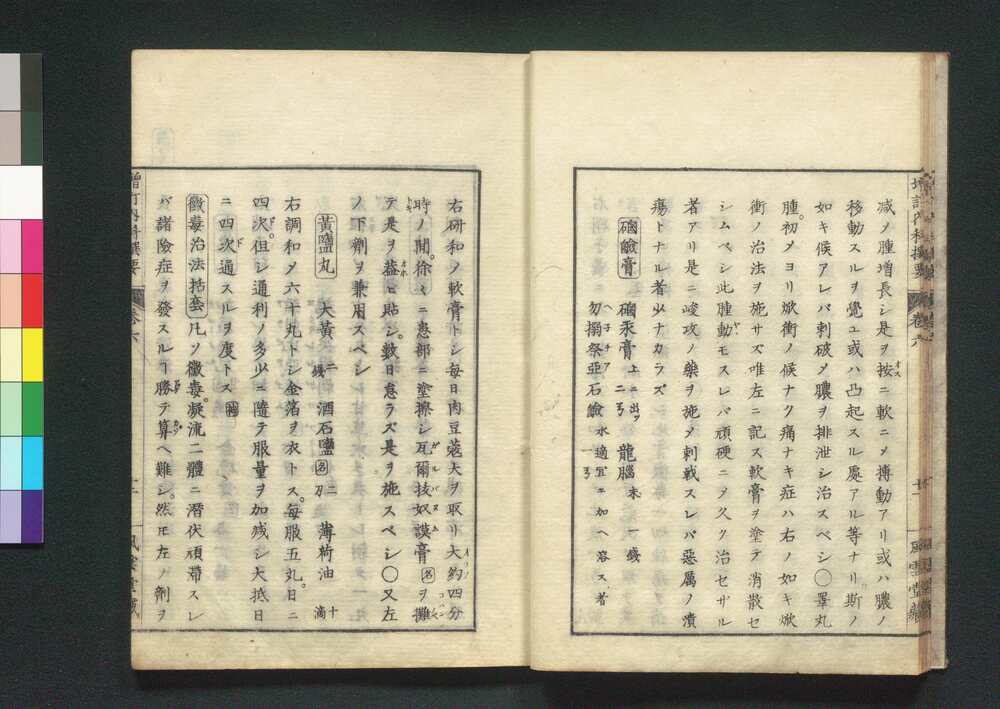 減メ腫増長シ是ヲ按ニ軟ニメ搏動アリ或ハ膿ノ
移動スルヲ覺ユ或ハ凸起スル處アル等ナリ斯ノ
如キ候アレバ刺破メ膿ヲ排泄シ治スベシ〇睪丸
腫初メヨリ焮衝ノ候ナク痛ナキ症ハ右ノ如キ焮
衝ノ治法ヲ施サズ唯左ニ記ス軟膏ヲ塗テ消散セ
シムベシ此腫動モスレバ頑硬ニメ久ク治セザル
者アリ是ニ峻攻ノ藥ヲ施メ刺戟スレバ惡厲ノ潰
瘍トナル者少ナカラズ
磠鹼膏 磠汞膏 上ニ出ツ 二弓 龍腦 末 一錢
勿搦祭亞石鹼水適宜ニ加ヘ溶ス者 一弓
増訂内科撰要 卷六 廿一 風雲堂藏
右研和メ軟膏トシ毎日肉豆蔲大ヲ取リ大約四分
時ノ間徐々ニ患部ニ塗擦シ瓦爾抜奴謨膏名ヲ攤
テ是ヲ葢ヒ貼シ數日怠ラズ是ヲ施スベシ〇又左
ノ下劑ヲ兼用スベシ
黃鹽丸 大黃 二錢 酒石鹽 名 二刀 薄荷油 十滴
右調和メ六十丸トシ金箔ヲ衣トス每服五丸日ニ
四次但シ通利ノ多少ニ隨テ服量ヲ加減シ大抵日
ニ四次通スルヲ度トス
黴毒治法括套 凡ソ黴毒凝流二體ニ潛伏頑滯スレ
バ諸險症ヲ發スルヿ勝テ算ヘ難シ然モ左ノ劑ヲ
増訂内科撰要 卷六 風雲堂藏